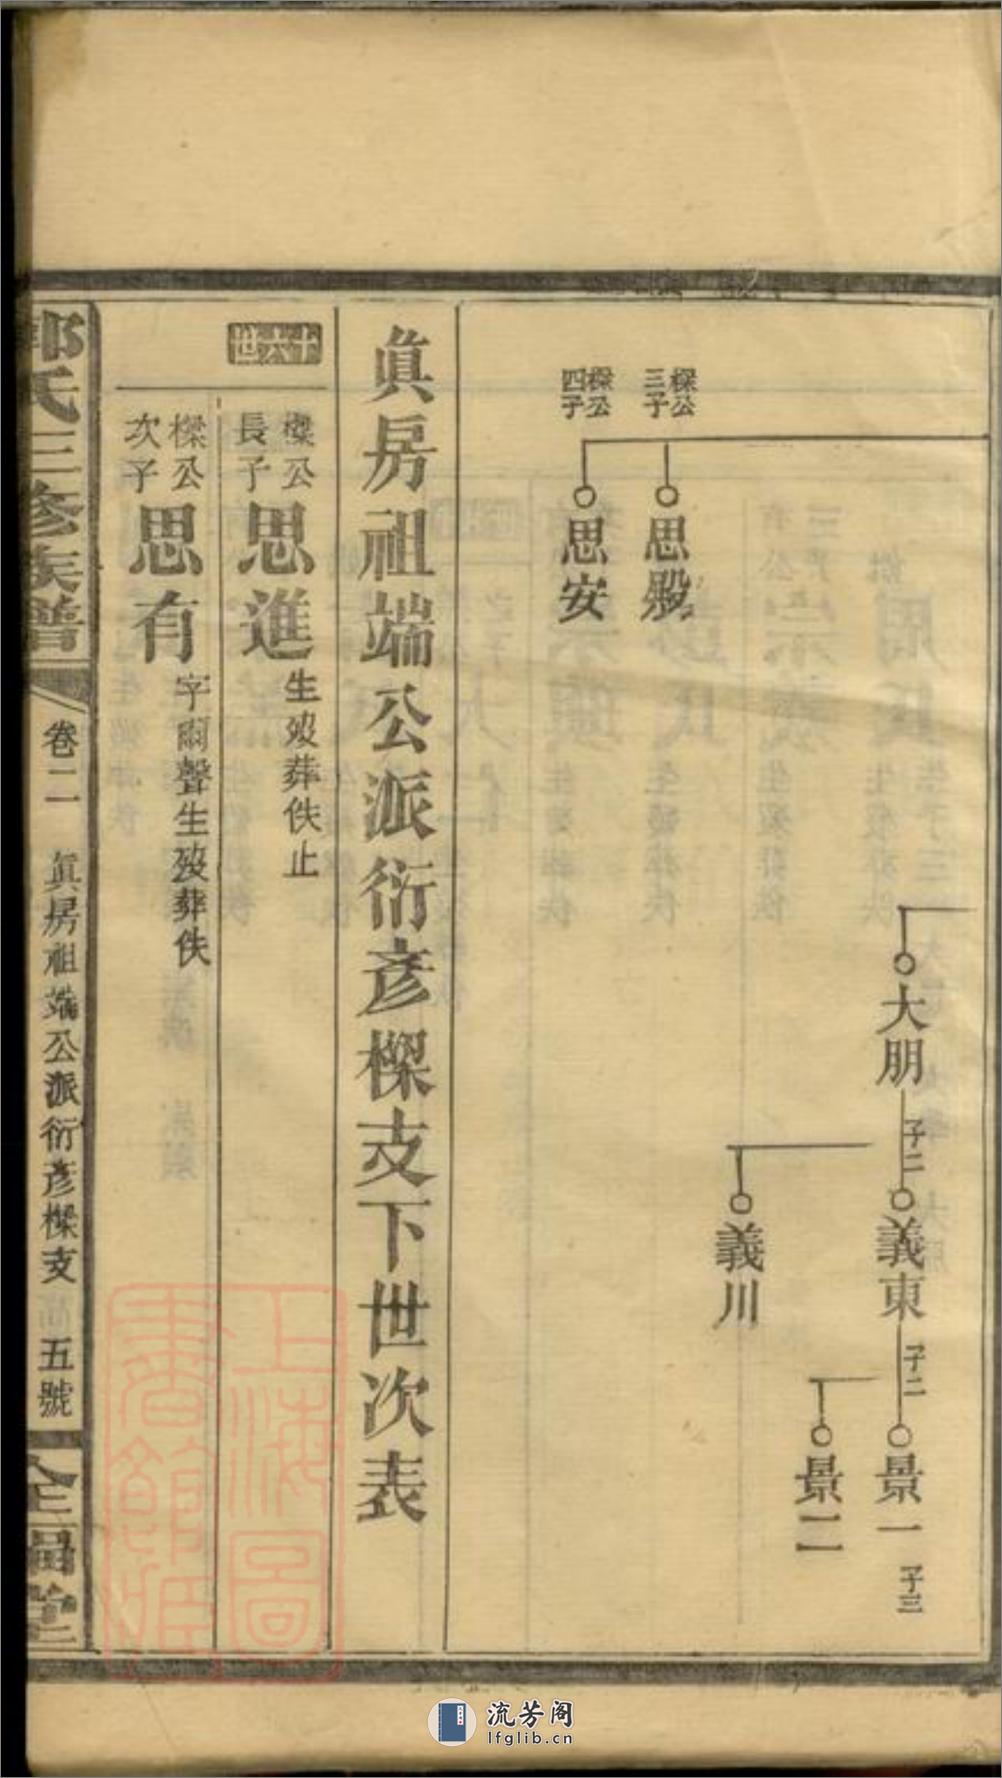 樑公
三子
思殷
樑公
四子
思安
大朋
子二
義東
子二
景一
子三
景二
義川
眞房祖端公派衍彥樑支下世次表
十六世
樑公
長子
思進
生歿葬佚止
樑公
次子
思有
字爾聲生歿葬佚
氏三修族譜
卷二
眞房祖端公派衍彥樑支
五號
上海圖
書館藏
流芳阁
lfglib.cn